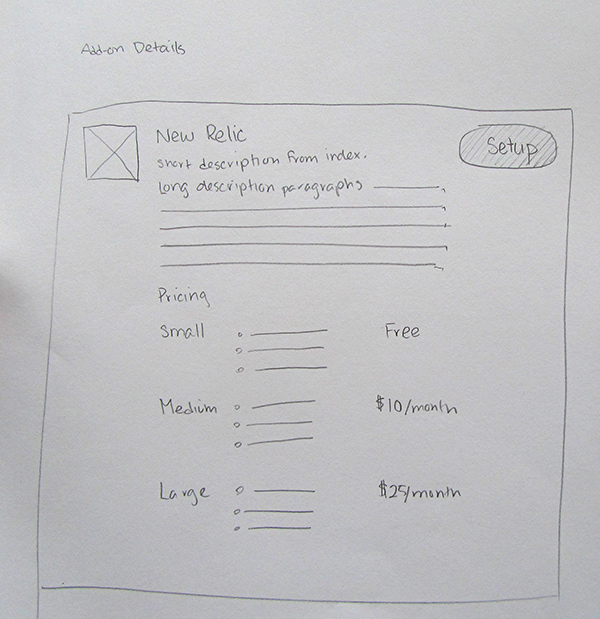 Add-on Details
New Relic
Setup
short description from index.
Long description paragraphs
Pricing
Small Free
Medium $10/month
Large $25/month